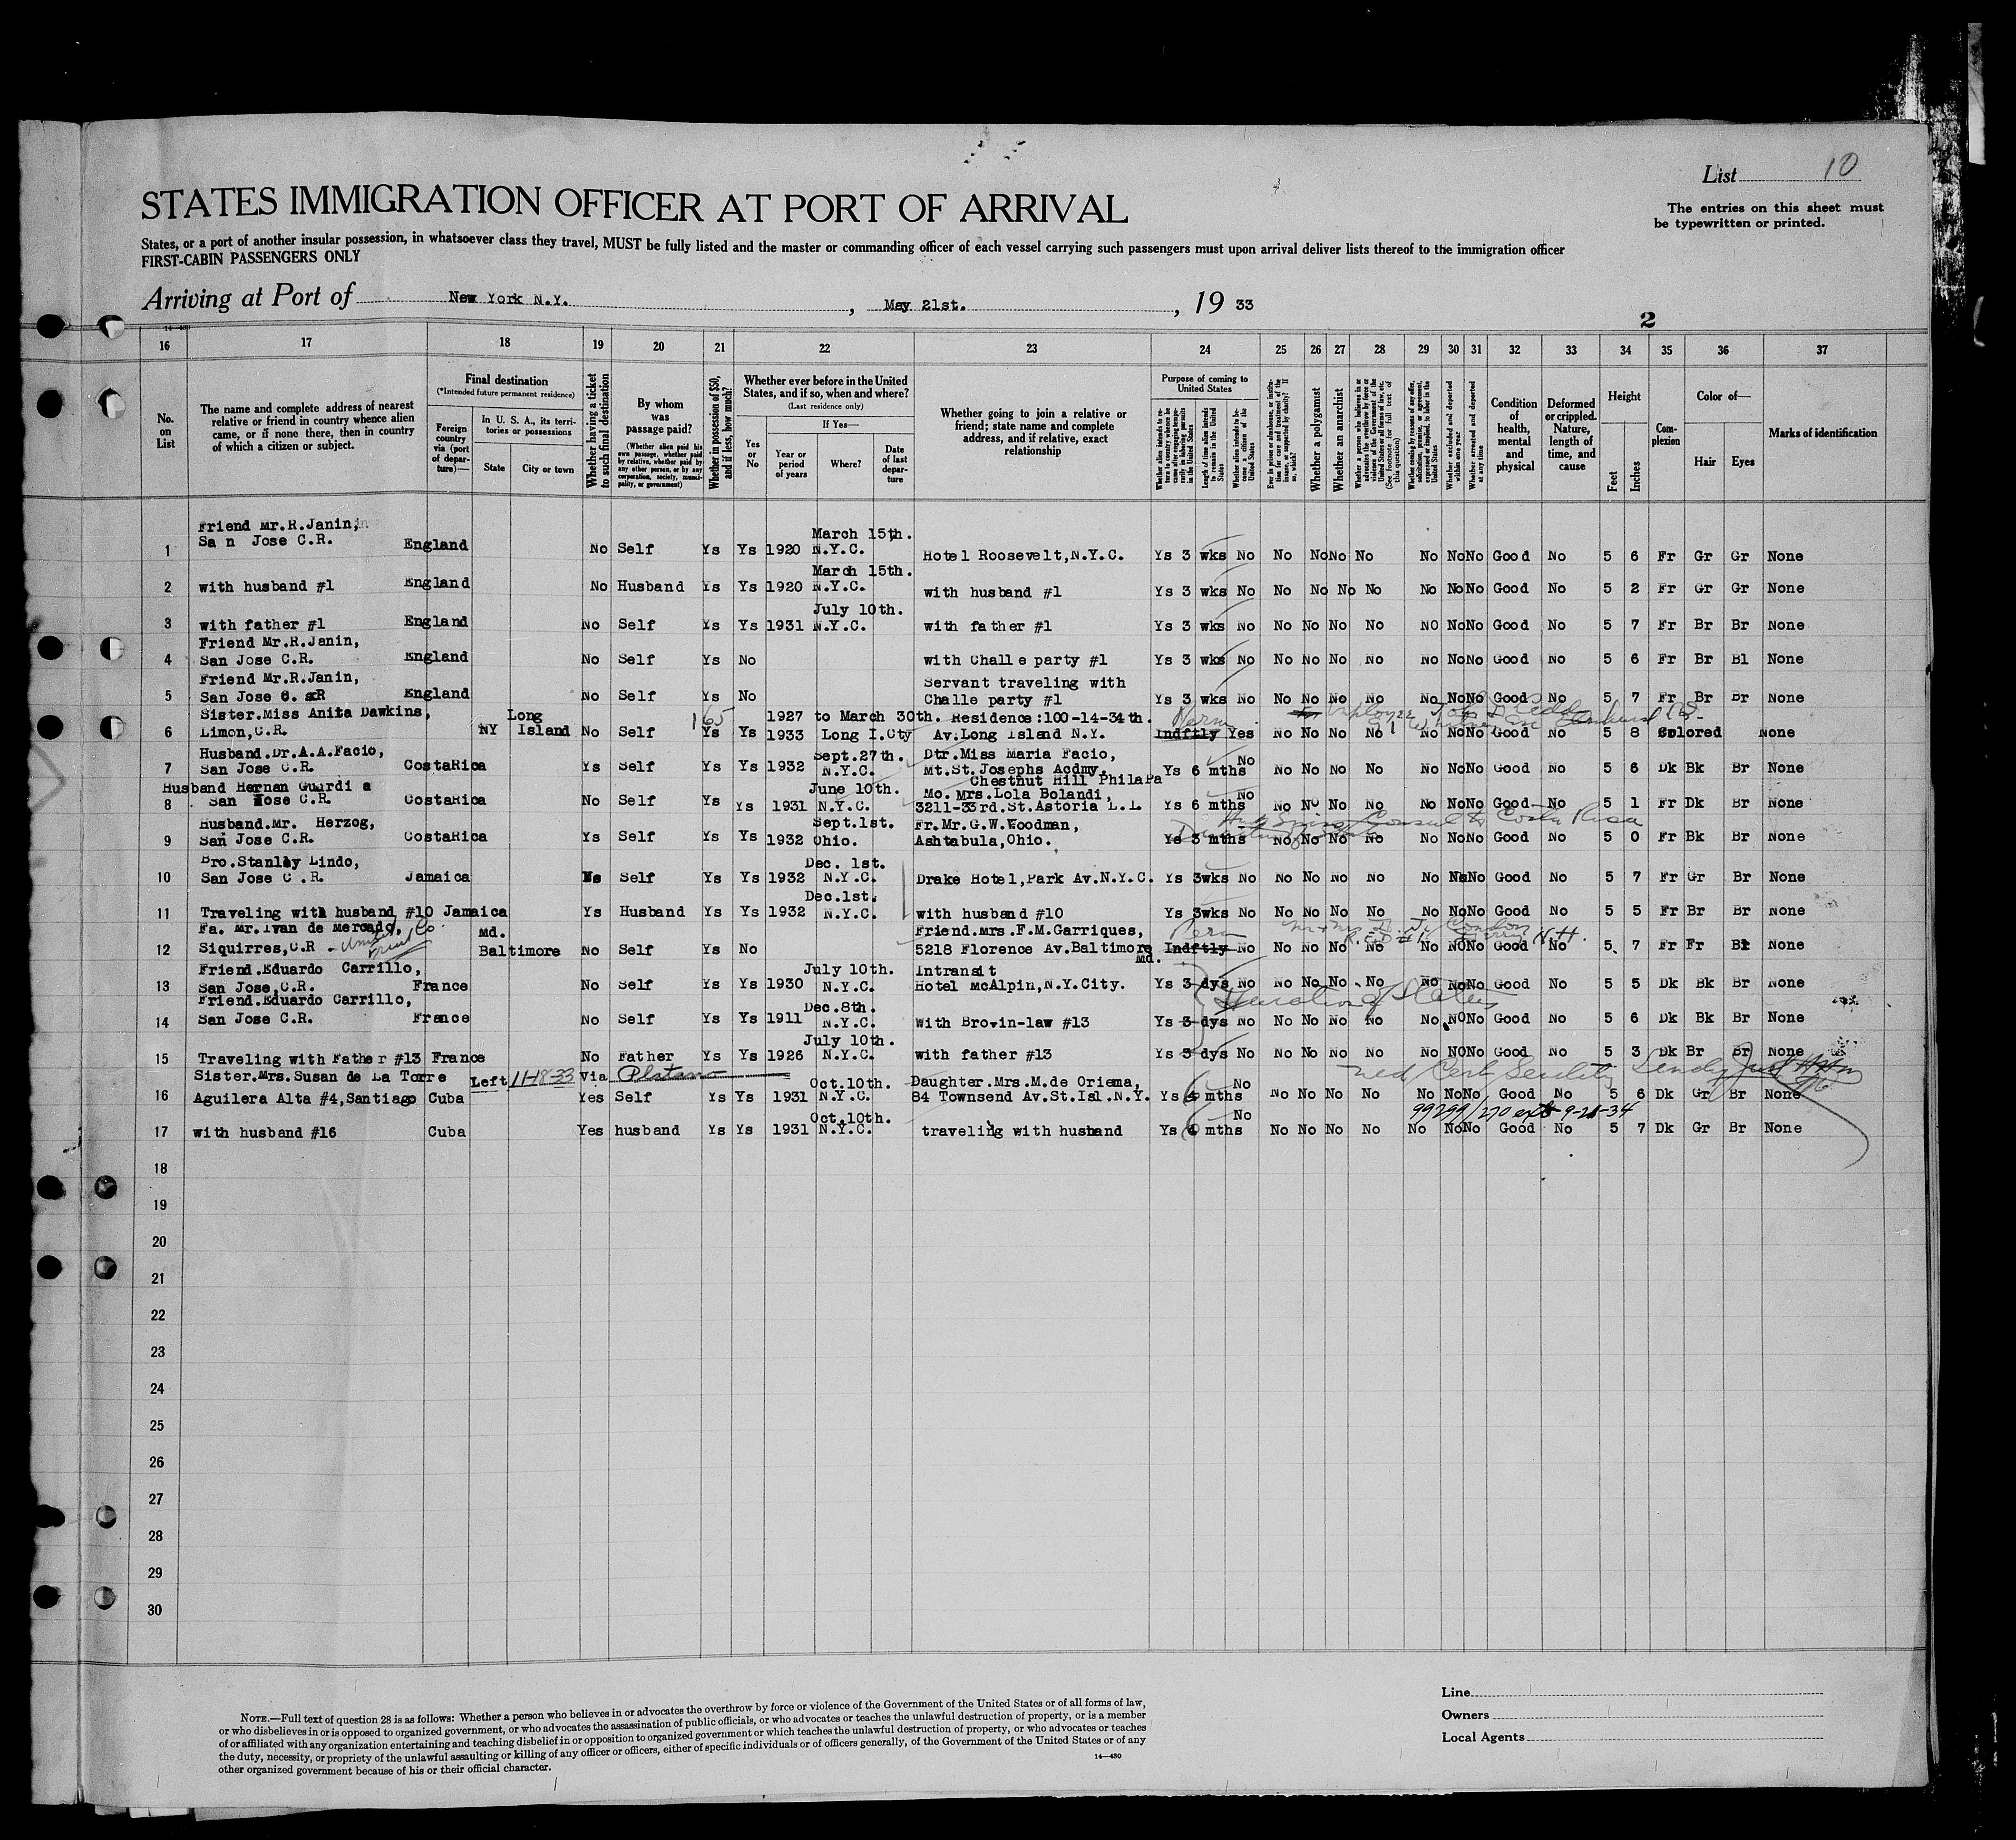 List 10
STATES IMMIGRATION OFFICER AT PORT OF ARRIVAL
The entries on this sheet must
be typewritten or printed.
States, or a port of another insular possession, in whatsoever class they travel, MUST be fully listed and the master or commanding officer of each vessel carrying such passengers must upon arrival deliver lists thereof to the immigration officer
FIRST-CABIN PASSENGERS ONLY
Arriving at Port of New York N.Y. , May 21st. , 19 33
2
16 17 18 19 20 21 22 23 24 25 26 27 28 29 30 31 32 33 34 35 36 37
No. on List
The name and complete address of nearest relative or friend in country whence alien came, or if none there, then in country of which a citizen or subject.
Final destination
(*Intended future permanent residence)
Foreign country via (port of departure)—
In U. S. A., its territories or possessions
State
City or town
Whether having a ticket to such final destination
By whom was passage paid?
(Whether alien paid his own passage, whether paid by relative, whether paid by any other person, or by any corporation, society, municipality, or government)
Whether in possession of $50, and if less, how much?
Whether ever before in the United States, and if so, when and where?
(Last residence only)
Yes or No
If Yes—
Year or period of years
Where?
Date of last departure
Whether going to join a relative or friend; state name and complete address, and if relative, exact relationship
Purpose of coming to United States
Whether alien intends to return to country whence he came after engaging temporarily in laboring pursuits in the United States
Length of time alien intends to remain in the United States
Whether alien intends to become a citizen of the United States
Ever in prison or almshouse, or institution for care and treatment of the insane, or supported by charity? If so, which?
Whether a polygamist
Whether an anarchist
Whether a person who believes in or advocates the overthrow by force or violence of the Government of the United States or all forms of law, etc. (See footnote for full text of this question)
Whether coming by reason of any offer, solicitation, promise, or agreement, expressed or implied, to labor in the United States
Whether excluded and deported within one year
Whether arrested and deported at any time
Condition of health, mental and physical
Deformed or crippled. Nature, length of time, and cause
Height
Feet
Inches
Complexion
Color of—
Hair
Eyes
Marks of identification
Friend Mr.R.Janin, March 15th.
1 Sa n Jose C.R. England No Self Ys Ys 1920 N.Y.C. Hotel Roosevelt,N.Y.C. Ys 3 wks No No No No No No No No Good No 5 6 Fr Gr Gr None
March 15th.
2 with husband #1 England No Husband Ys Ys 1920 N.Y.C. with husband #1 Ys 3 wks No No No No No No No No Good No 5 2 Fr Gr Gr None
July 10th.
3 with father #1 England No Self Ys Ys 1931 N.Y.C. with father #1 Ys 3 wks No No No No No NO No No Good No 5 7 Fr Br Br None
Friend Mr.R.Janin,
4 San Jose C.R. England No Self Ys No with Challe party #1 Ys 3 wks No No No No No No No No Good No 5 6 Fr Br Bl None
Friend Mr.R.Janin, Servant traveling with
5 San Jose C. R England No Self Ys No Challe party #1 Ys 3 wks No No No No No No No No Good No 5 7 Fr Br Br None
Sister.Miss Anita Dawkins, Long 165 1927 to March 30th. Residence:100-14-34th.
6 Limon,C.R. NY Island No Self Ys Ys 1933 Long I.Cty Av.Long Island N.Y. Indftly Yes No No No No No No No Good No 5 8 Colored None
Husband.Dr.A.A.Facio, Sept.27th. Dtr.Miss Maria Facio, No
7 San Jose C.R. CostaRica Ys Self Ys Ys 1932 N.Y.C. Mt.St.Josephs Acdmy. Ys 6 mths No No No No No No No Good No 5 6 Dk Bk Br None
Chestnut Hill PhilaPa
Husband Hernan Guardi a June 10th. Mo. Mrs.Lola Bolandi, No
8 San Jose C.R. CostaRica No Self Ys Ys 1931 N.Y.C. 3211-33rd.St.Astoria L.I. Ys 6 mths No No No No No No No Good No 5 1 Fr Dk Br None
Costa Rica
Husband.Mr. Herzog, Sept.1st. Fr.Mr.G.W.Woodman,
9 San Jose C.R. CostaRica Ys Self Ys Ys 1932 Ohio. Ashtabula,Ohio. Ys 3 mths No No No No No No No Good No 5 0 Fr Bk Br None
Bro.Stanley Lindo, Dec. 1st.
10 San Jose C .R. Jamaica Self Ys Ys 1932 N.Y.C. Drake Hotel,Park Av.N.Y.C. Ys 3wks No No No No No No No No Good No 5 7 Fr Gr Br None
Dec.1st.
11 Traveling with husband #10 Jamaica Ys Husband Ys Ys 1932 N.Y.C. with husband #10 Ys 3wks No No No No No No No No Good No 5 5 Fr Br Br None
Fa. Mr.Ivan de Mercado, Md. Friend.Mrs.F.M.Garriques,
12 Siquirres,C.R Baltimore No Self Ys No 5218 Florence Av.Baltimore Md. Indftly No No No No No No NO No Good No 5 7 Fr Fr None
Friend.Eduardo Carrillo, July 10th. Intransit
13 San Jose,C.R. France No Self Ys Ys 1930 N.Y.C. Hotel McAlpin,N.Y.City. Ys 3 dys No No No No No No No No Good No 5 5 Dk Bk Br None
Friend.Eduardo Carrillo, Dec.8th.
14 San Jose C.R. France No Self Ys Ys 1911 N.Y.C. With Bro-in-law #13 Ys 3 dys No No No No No No NO No Good No 5 6 Dk Bk Br None
July 10th.
15 Traveling with Father #13 France No Father Ys Ys 1926 N.Y.C. with father #13 Ys 3 dys No No No No No No NO No Good No 5 3 Dk Br Br None
Sister.Mrs.Susan de La Torre Left 11-18-33 Via Platano Oct.10th. Daughter.Mrs.M.de Oriema, No
16 Aguilera Alta #4,Santiago Cuba Yes Self Ys Ys 1931 N.Y.C. 84 Townsend Av.St.Isl.N.Y. Ys 4 mths No No No No No No No Good No 5 6 Dk Gr Br None
Oct.10th. No
17 with husband #16 Cuba Yes husband Ys Ys 1931 N.Y.C. traveling with husband Ys 4 mths No No No No No No No Good No 5 7 Dk Gr Br None
18
19
20
21
22
23
24
25
26
27
28
29
30
NOTE.—Full text of question 28 is as follows: Whether a person who believes in or advocates the overthrow by force or violence of the Government of the United States or of all forms of law,
or who disbelieves in or is opposed to organized government, or who advocates the assassination of public officials, or who advocates or teaches the unlawful destruction of property, or is a member
of or affiliated with any organization entertaining and teaching disbelief in or opposition to organized government or which teaches the unlawful destruction of property, or who advocates or teaches
the duty, necessity, or propriety of the unlawful assaulting or killing of any officer or officers, either of specific individuals or of officers generally, of the Government of the United States or of any
other organized government because of his or their official character.
14—430
Line
Owners
Local Agents